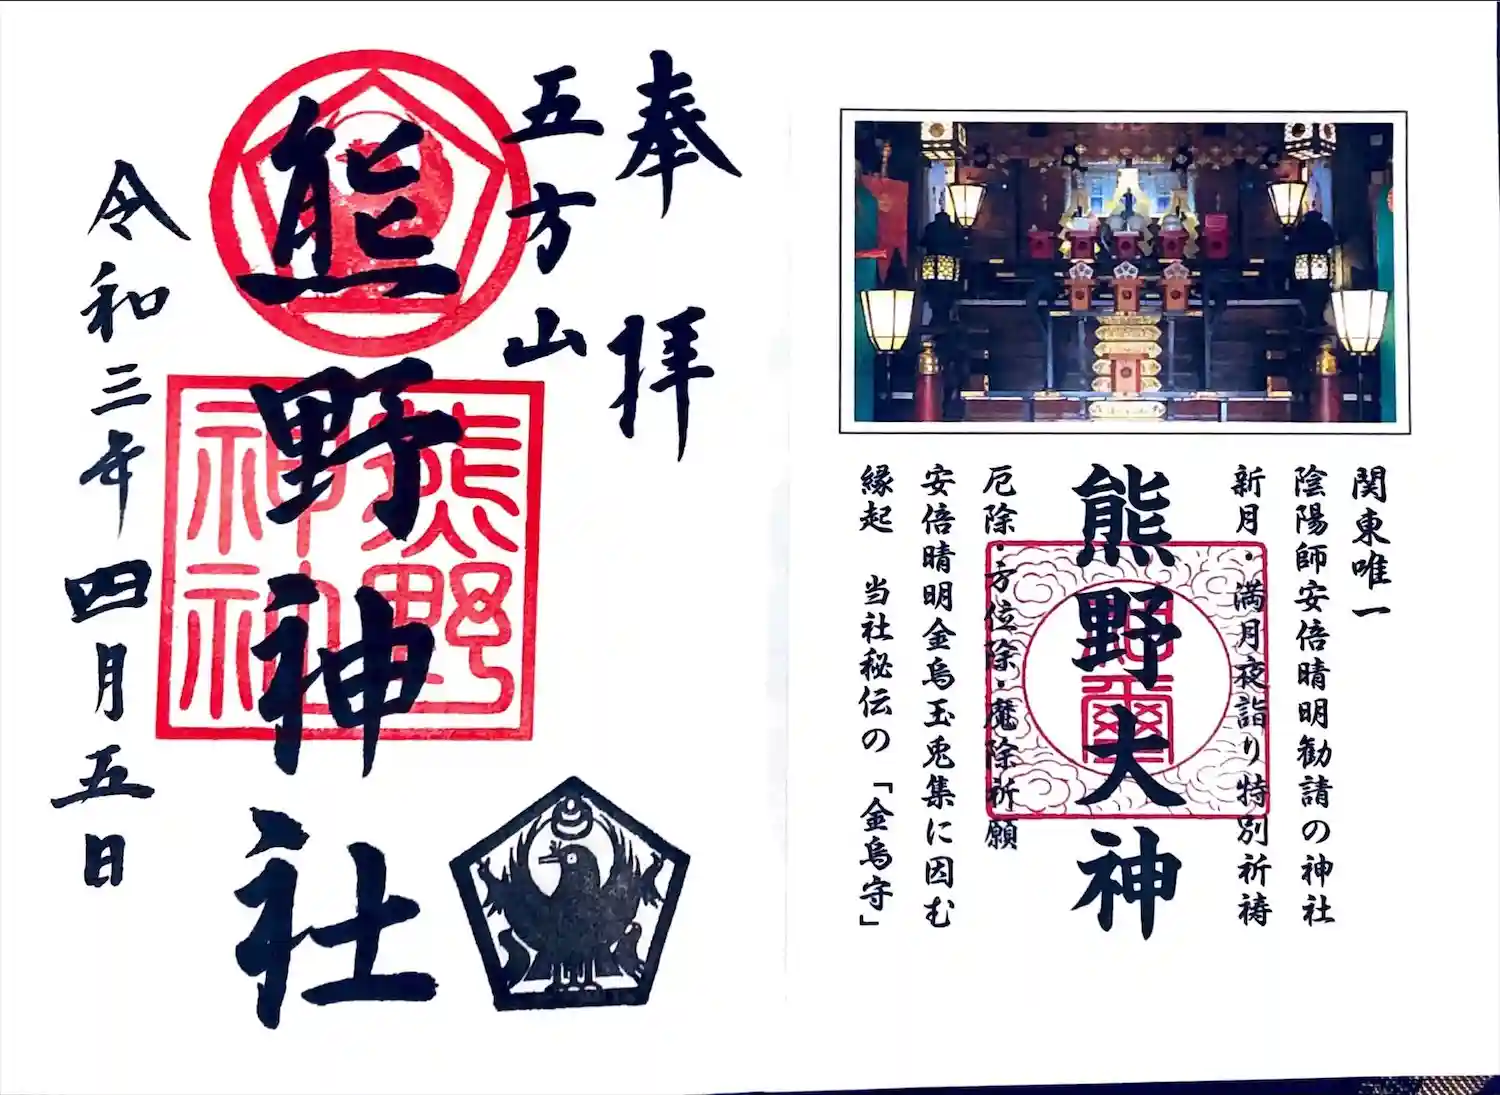 関東唯一
陰陽師安倍晴明勧請の神社
新月・満月夜詣り特別祈祷
熊野大神
厄除・方位除・魔除祈願
安倍晴明金烏玉兎集に因む
縁起 当社秘伝の「金烏守」
奉拝
五方山
熊野神社
熊野神社
令和三年四月五日